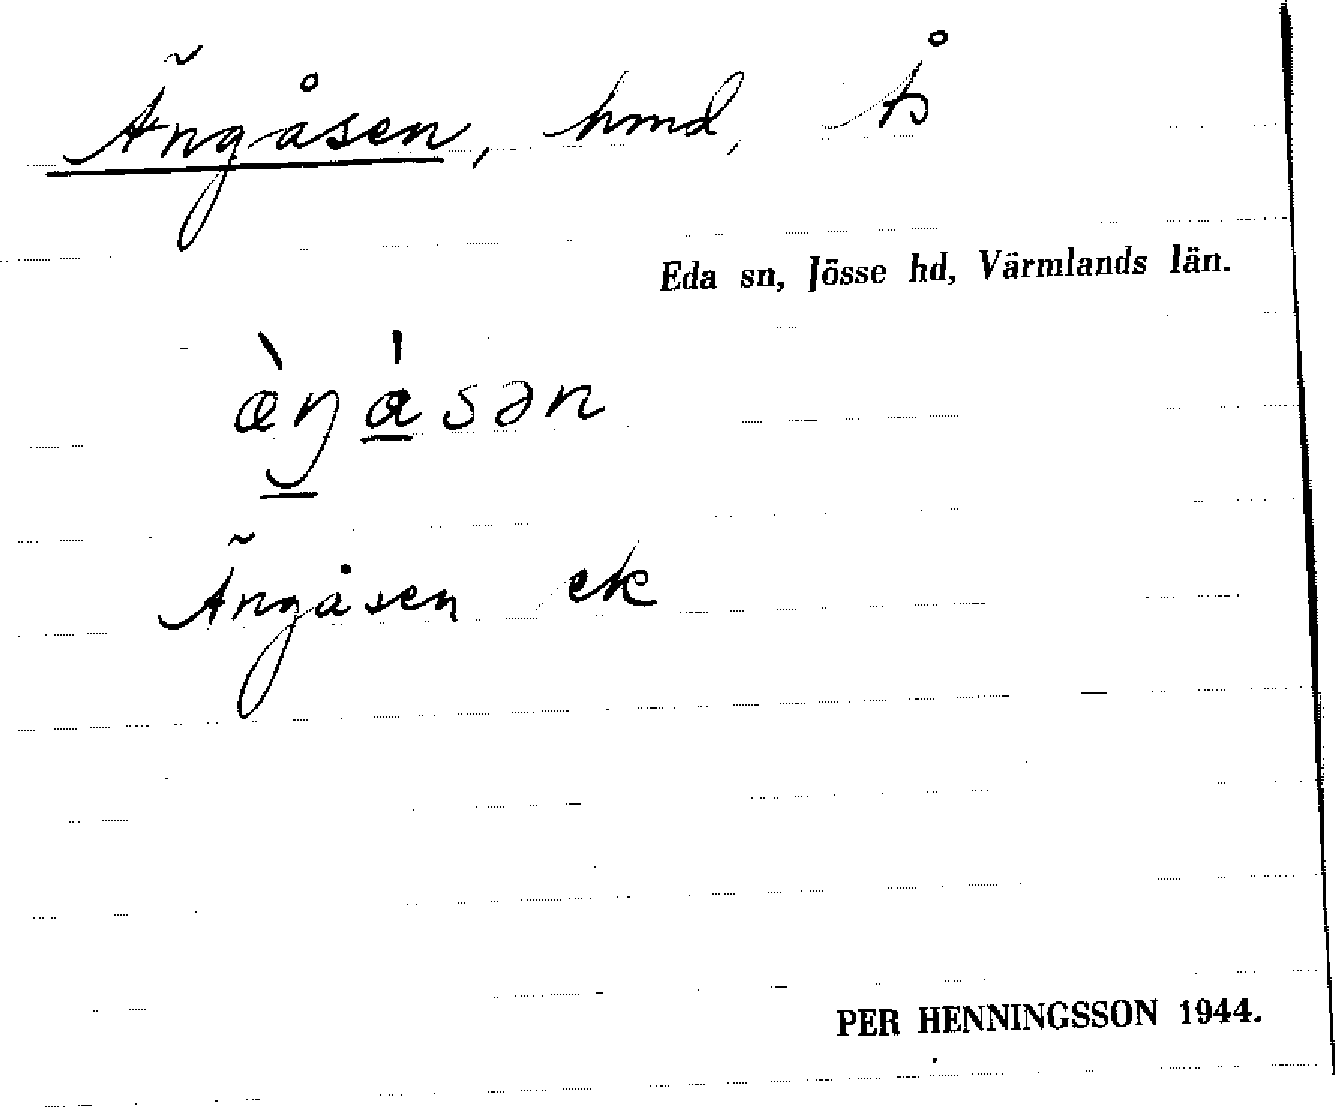 Ängåsen, hmd, Ås
Eda sn, Jösse hd, Värmlands län.
æ̀ŋásən
Ängåsen ek
PER HENNINGSSON 1944.